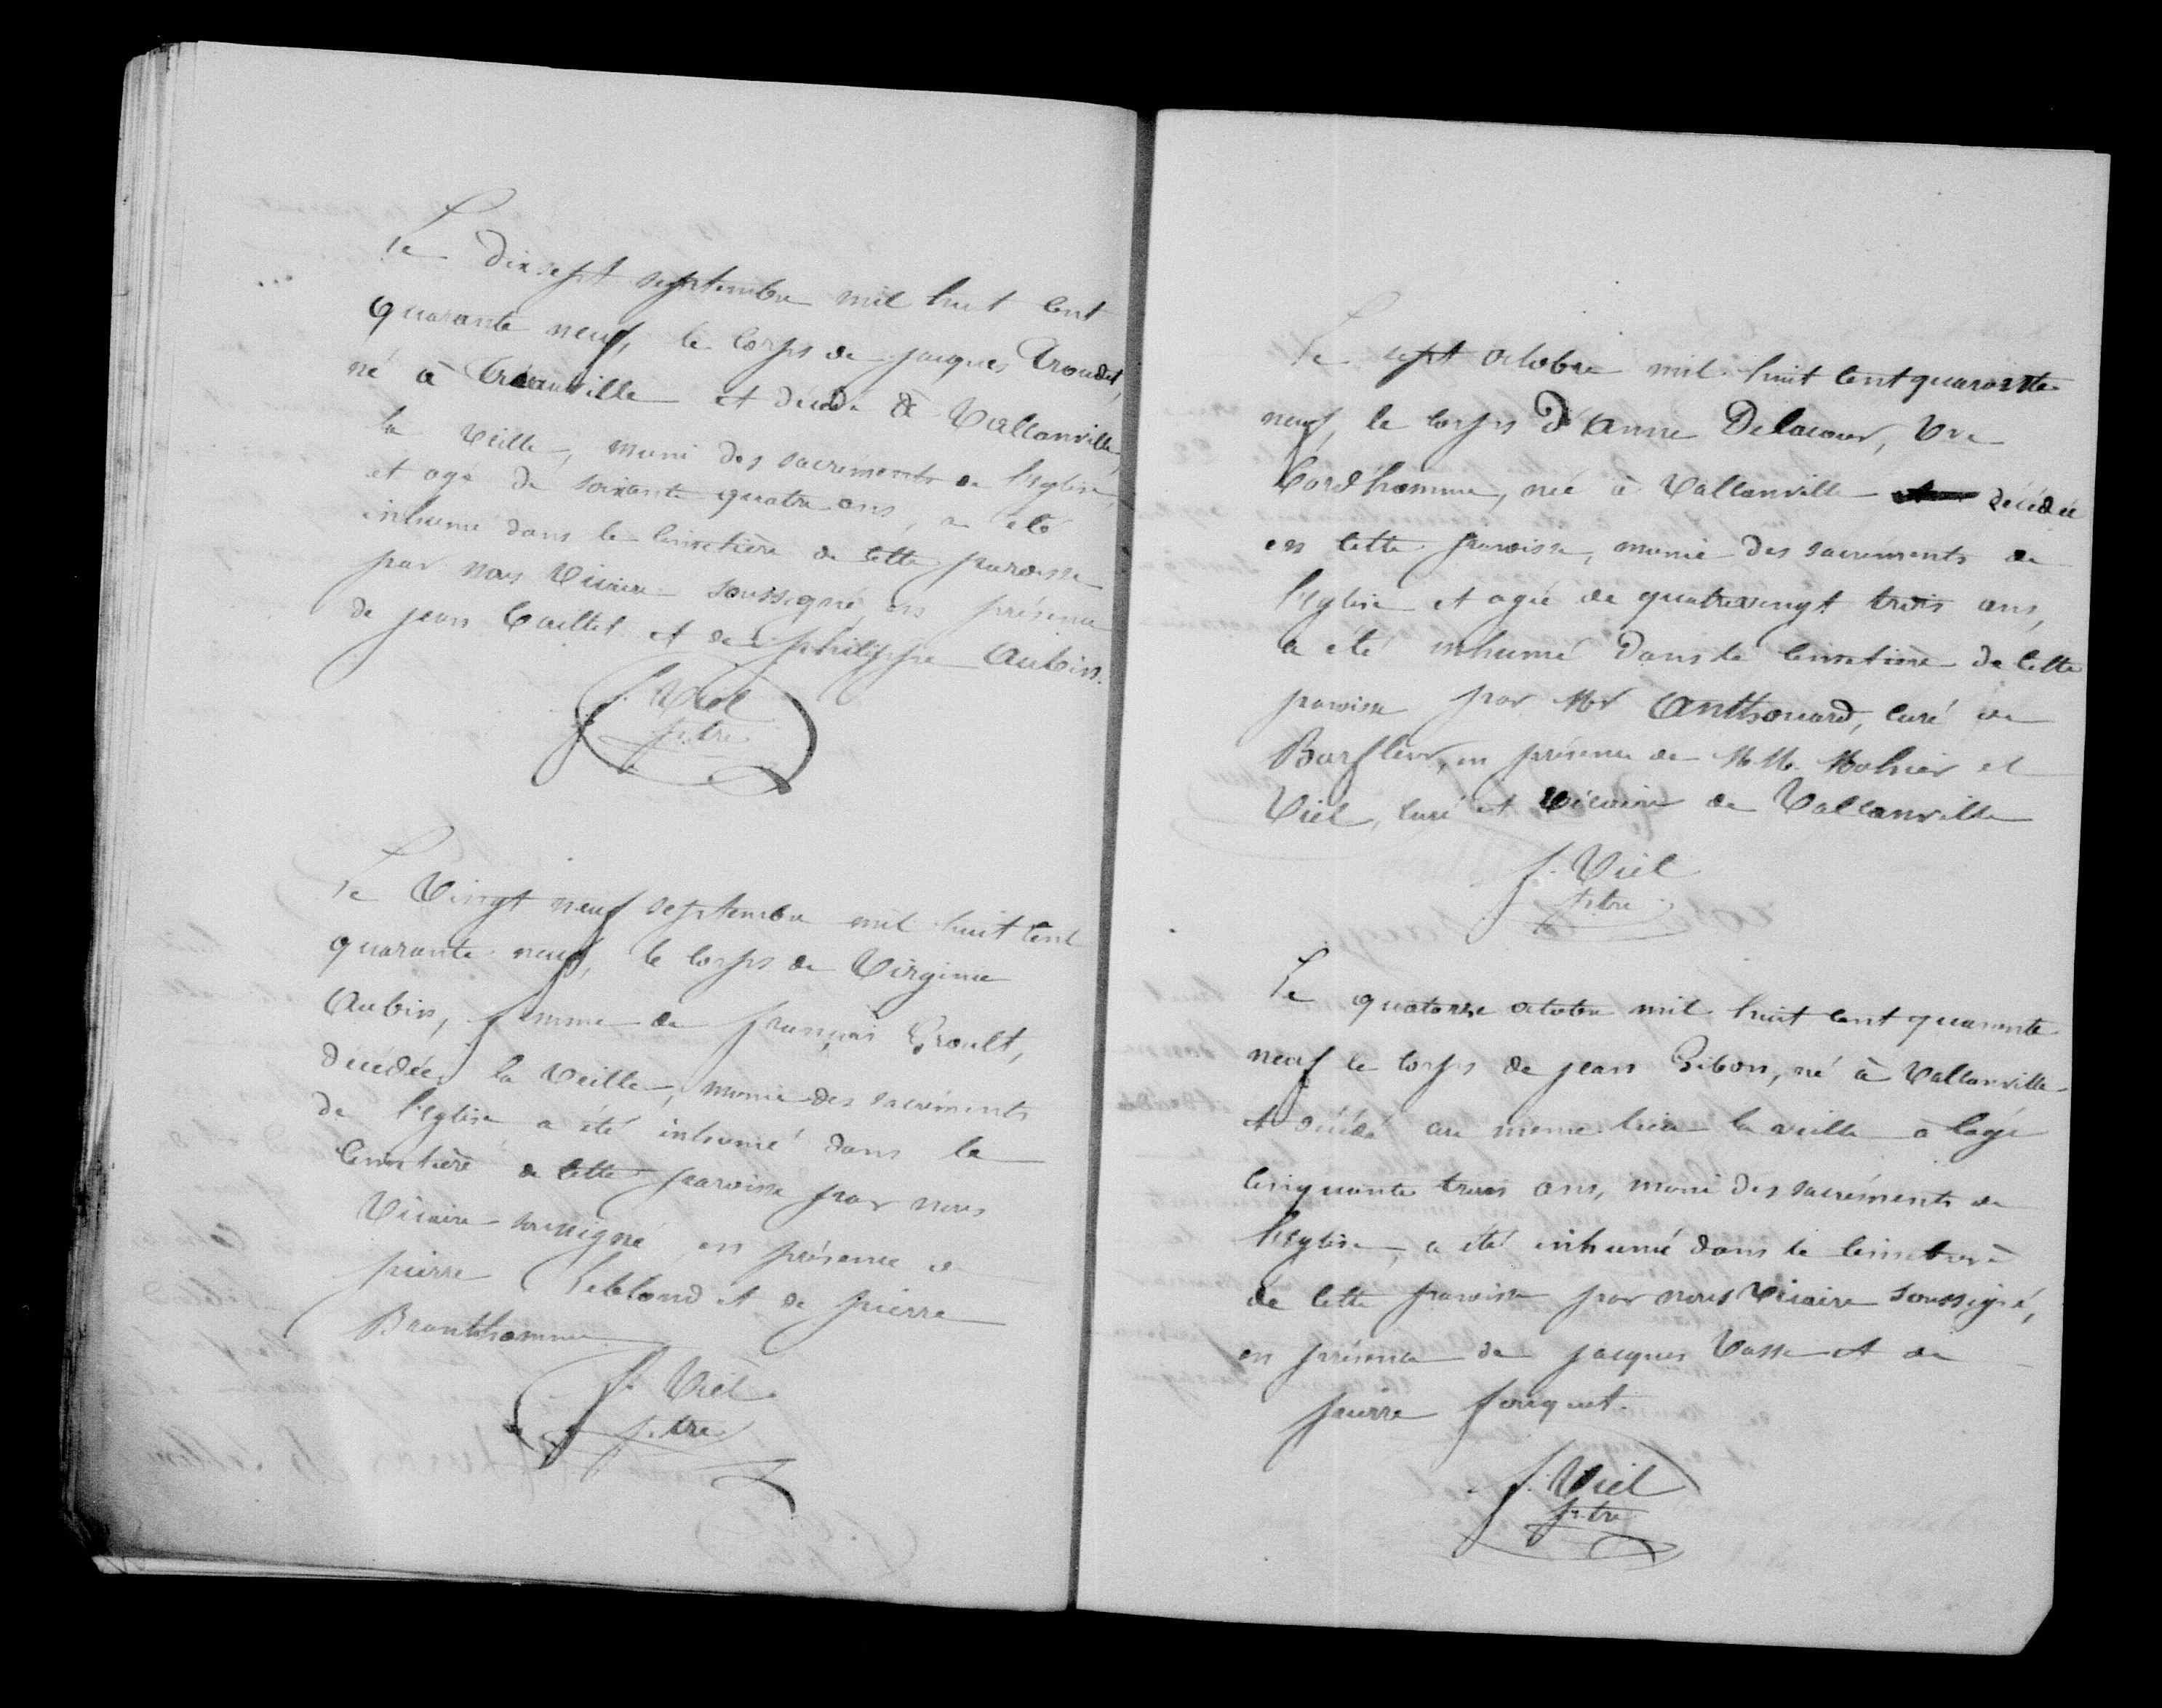 Le dix sept septembre mil huit cent
quarante neuf, le corps de jacques Troude,
né à Vrauville et décédé à Vallanville,
la veille, muni des sacrements de l'Eglise
et agé de soixante quatre ans, a été
inhumé dans le cimetière de cette paroisse
par nous Vicaire soussigné en présence
de jean Caillet et de philippe Aubin.
f. Viel
ptre
Le Vingt neuf septembre mil huit cent
quarante neuf, le corps de Virginie
Aubin, femme de françois Groult,
décédée la Veille, munie des sacréments
de l'Eglise a été inhumé dans le
Cimetière de cette paroisse par nous
Vicaire soussigné en présence de
pierre Leblond et de pierre
Branthomme
f. Viel
ptre
Le sept octobre mil huit cent quarante
neuf, le corps d'Anne Delacour, Vve
Cordhomme, née à Vallanville décédée
en cette paroisse, munie des sacrements de
l'Eglise et agée de quatrevingt trois ans,
a été inhumé dans le cimetière de cette
paroisse par Mr Anthouard, curé de
Barfleur, en présence de M.M. Mohier et
Viel, curé et Vicaire de Vallanville
f. Viel
ptre
Le quatorze octobre mil huit cent quarante
neuf le corps de jean Gibon, né à Vallanville
et décédé au meme lieu la veille a lage
cinquante trois ans, muni des sacréments de
l'Eglise, a été inhumé dans le Cimetierè
de cette paroisse par nous Vicaire soussigné,
en présence de jacques Vasse et de
pierre fouquet.
f. Viel
ptre